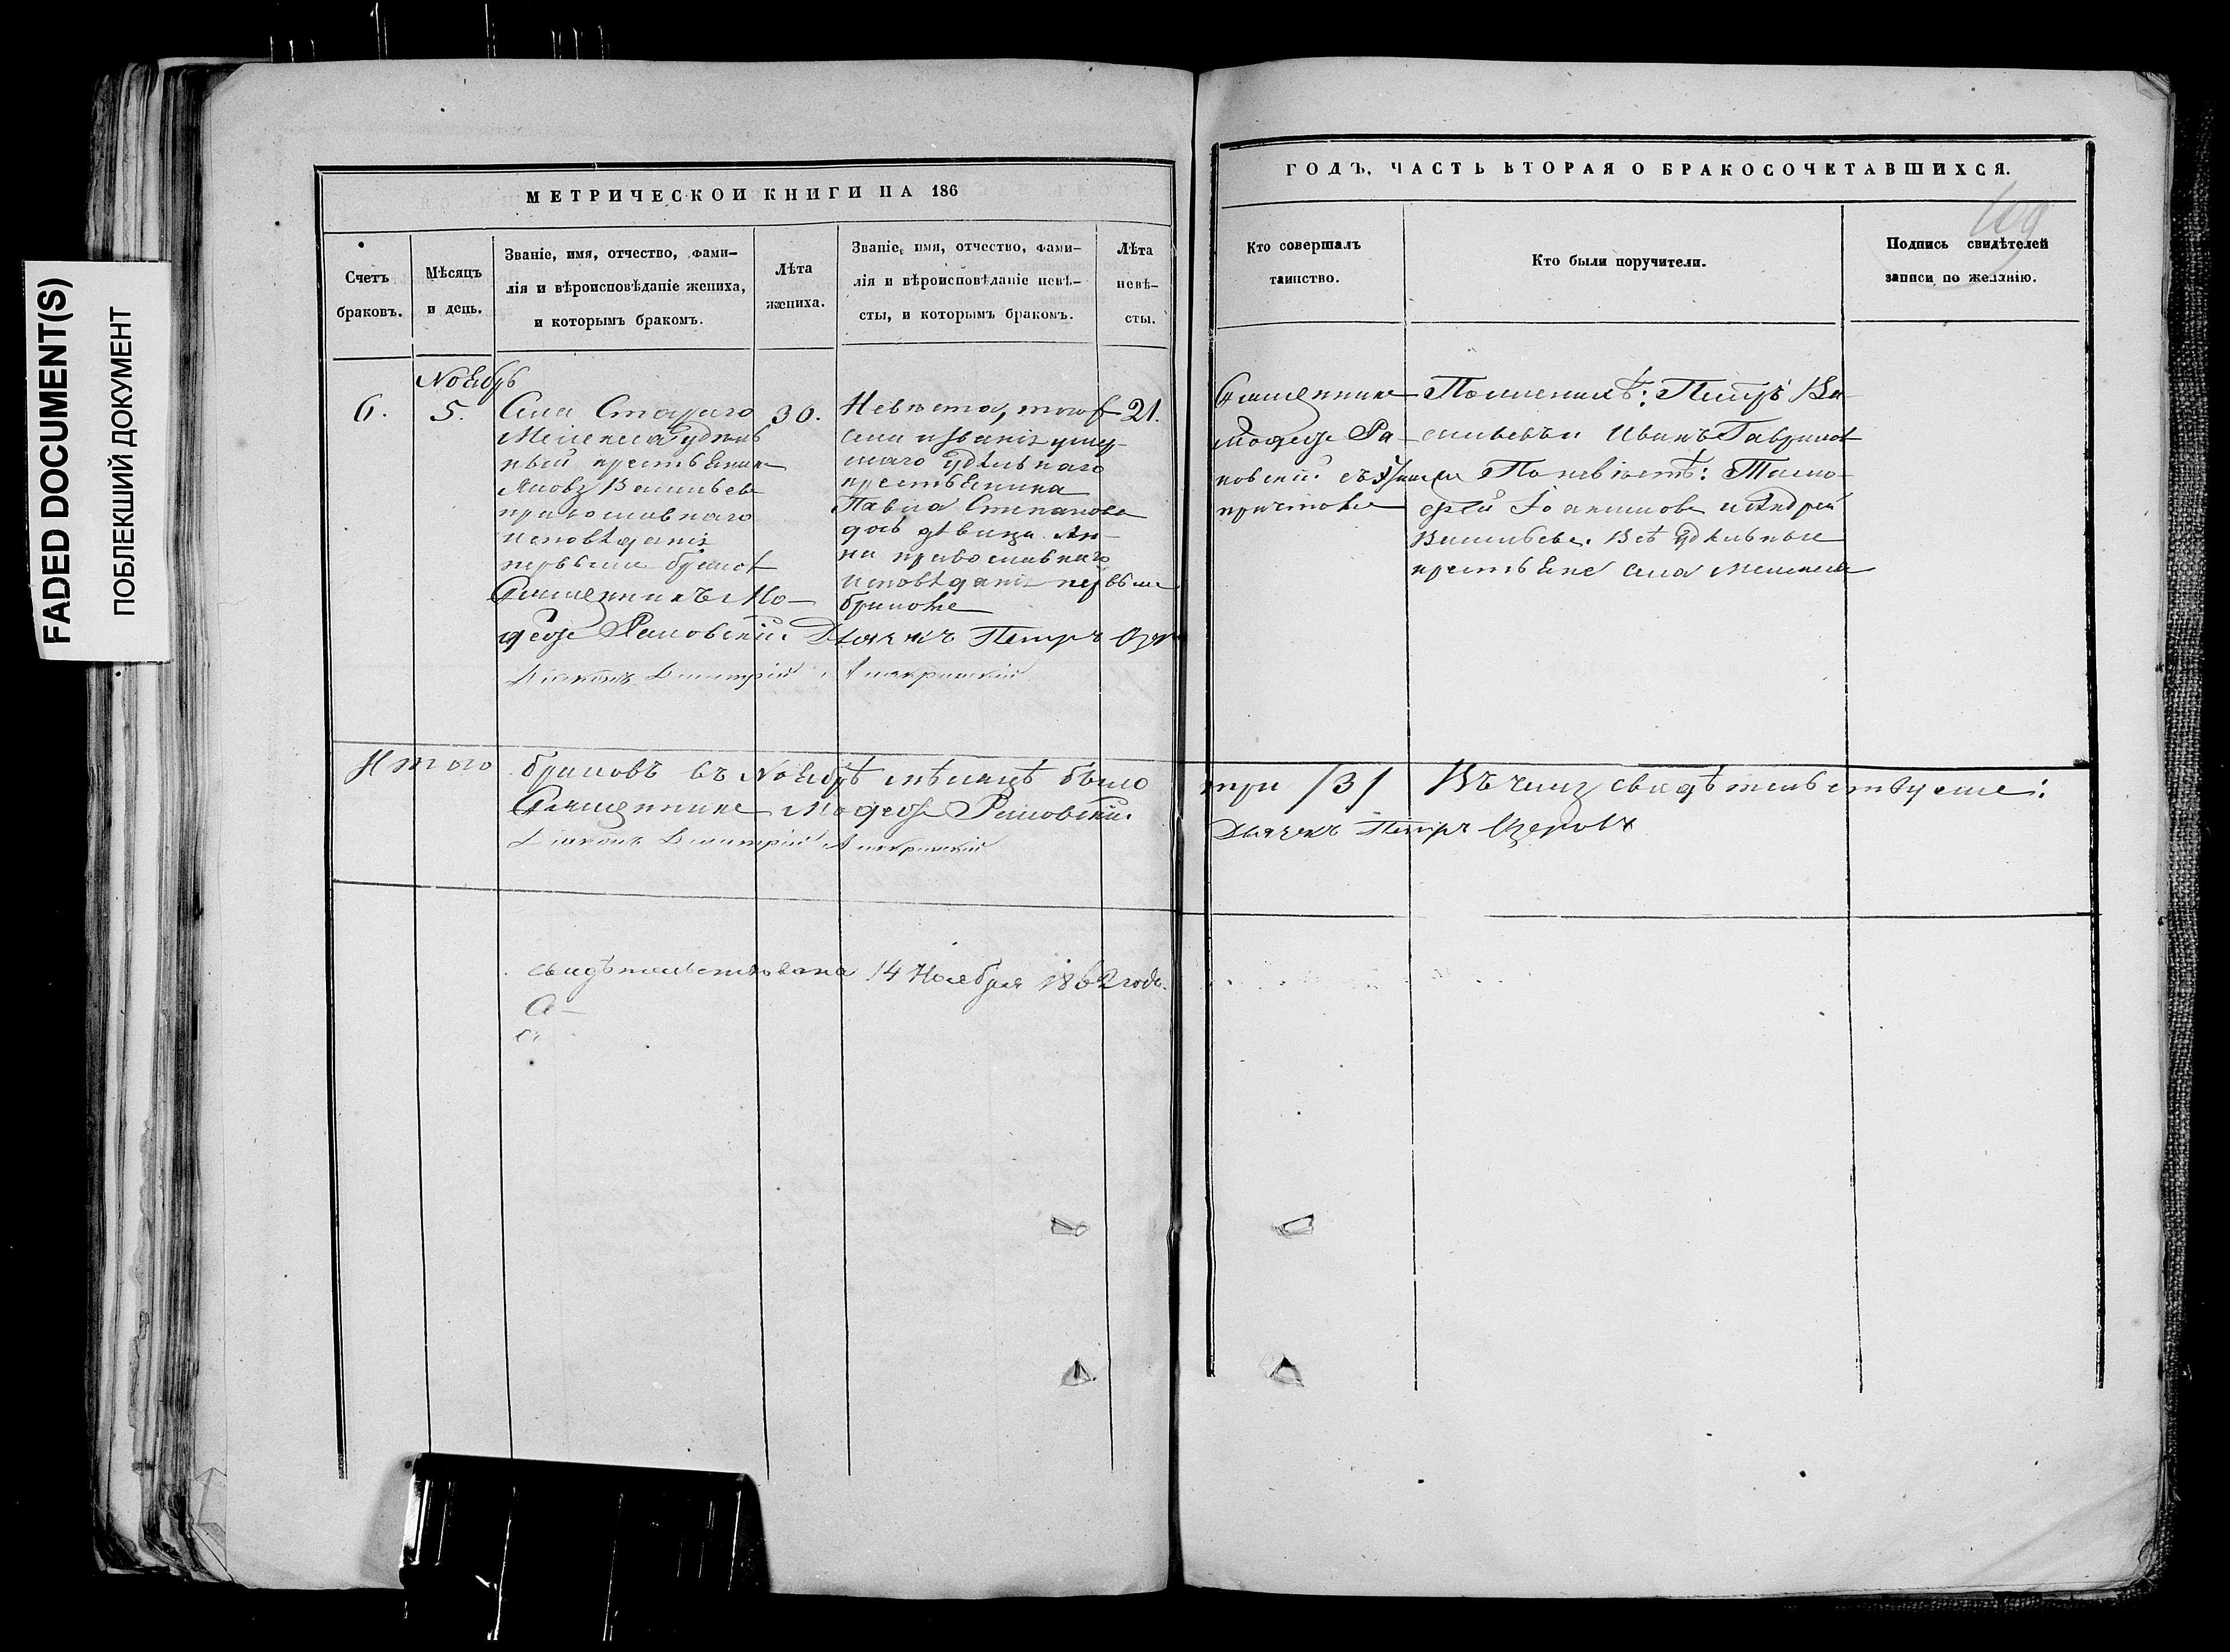 FADED DOCUMENT(S)
ПОБЛЕКШИЙ ДОКУМЕНТ
МЕТРИЧЕСКОЙ КНИГИ НА 186
Счетъ
браковъ.
Мѣсяцъ
и день.
Званіе, имя, отчество, фами-
лія и вѣроисповѣданіе жениха,
и которымъ бракомъ.
Лѣта
жениха.
Званіе, имя, отчество, фами-
лія и вѣроисповѣданіе невѣ-
сты, и которымъ бракомъ.
Лѣта
невѣ-
сты.
Ноябрь
6.
5.
Села Стараго
удѣль
ный крестьянинъ
Яковъ Васильевъ
православнаго
исповѣданія
первымъ бракомъ
30.
Невѣста, того
села и званія умер-
шаго удѣльнаго
крестьянина
Павла Степанова
дочь дѣвица Ан-
на православнаго
исповѣданія первымъ
бракомъ
21.
Священникъ
Дьячекъ Петръ
Діаконъ Димитрій
Итого браковъ въ Ноябрѣ мѣсяцѣ было
Священникъ
Діаконъ Димитрій
свидѣтельствована 14 Ноября 1862 года.
ГОДЪ, ЧАСТЬ ВТОРАЯ О БРАКОСОЧЕТАВШИХСЯ.
Кто совершалъ
таинство.
Кто были поручители.
Подпись свидѣтелей
записи по желанію.
Священникъ
причтомъ
По женихѣ: Петръ Ва-
сильевъ и Иванъ Гавриловъ
По невѣстѣ: Тимо-
фей Іоакимовъ и Андрей
Васильевъ. Всѣ удѣльные
крестьяне села
три /3/ Въ чемъ свидѣтельствуемъ:
Дьячекъ Петръ